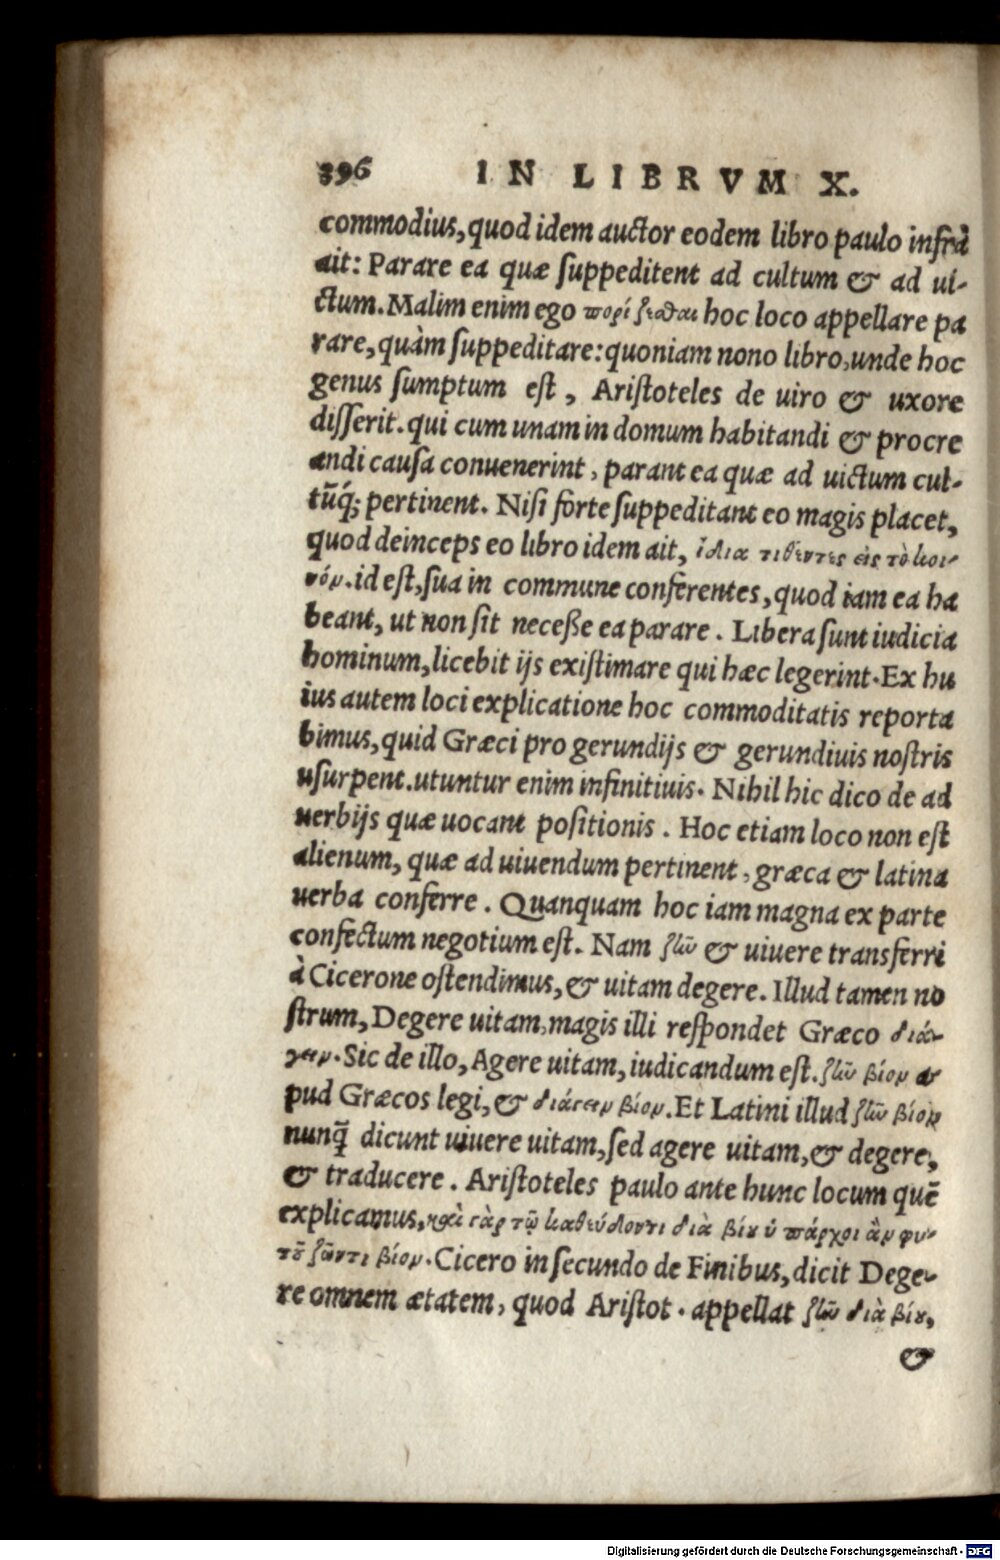 396 IN LIBRVM X.
commodius, quod idem auctor eodem libro paulo infrà
ait: Parare ea quæ suppeditent ad cultum & ad ui-
ctum. Malim enim ego πορίζεσθαι hoc loco appellare pa
rare, quàm suppeditare: quoniam nono libro, unde hoc
genus sumptum est, Aristoteles de uiro & uxore
disserit. qui cum unam in domum habitandi & procre
andi causa conuenerint, parant ea quæ ad uictum cul-
tũq́; pertinent. Nisi forte suppeditant eo magis placet,
quod deinceps eo libro idem ait, ἴδια τιθέντες εἰς τὸ κοι-
νόν. id est, sua in commune conferentes, quod iam ea ha
beant, ut non sit necesse ea parare. Libera sunt iudicia
hominum, licebit ijs existimare qui hæc legerint. Ex hu
ius autem loci explicatione hoc commoditatis reporta
bimus, quid Græci pro gerundijs & gerundiuis nostris
usurpent. utuntur enim infinitiuis. Nihil hic dico de ad
uerbijs quæ uocant positionis. Hoc etiam loco non est
alienum, quæ ad uiuendum pertinent, græca & latina
uerba conferre. Quanquam hoc iam magna ex parte
confectum negotium est. Nam ζῆν & uiuere transferri
à Cicerone ostendimus, & uitam degere. Illud tamen no
strum, Degere uitam, magis illi respondet Græco διά-
γειν. Sic de illo, Agere uitam, iudicandum est. ζῆν βίον a-
pud Græcos legi, & διάγειν βίον. Et Latini illud ζῆν βίον
nunq̃ dicunt uiuere uitam, sed agere uitam, & degere,
& traducere. Aristoteles paulo ante hunc locum quẽ
explicamus, καὶ γὰρ τῷ καθεύδοντι διὰ βίου ὑπάρχοι ἂν φυ-
τοῦ ζῶντι βίον. Cicero in secundo de Finibus, dicit Dege-
re omnem ætatem, quod Aristot. appellat ζῆν διὰ βίου,
&
Digitalisierung gefördert durch die Deutsche Forschungsgemeinschaft - DFG